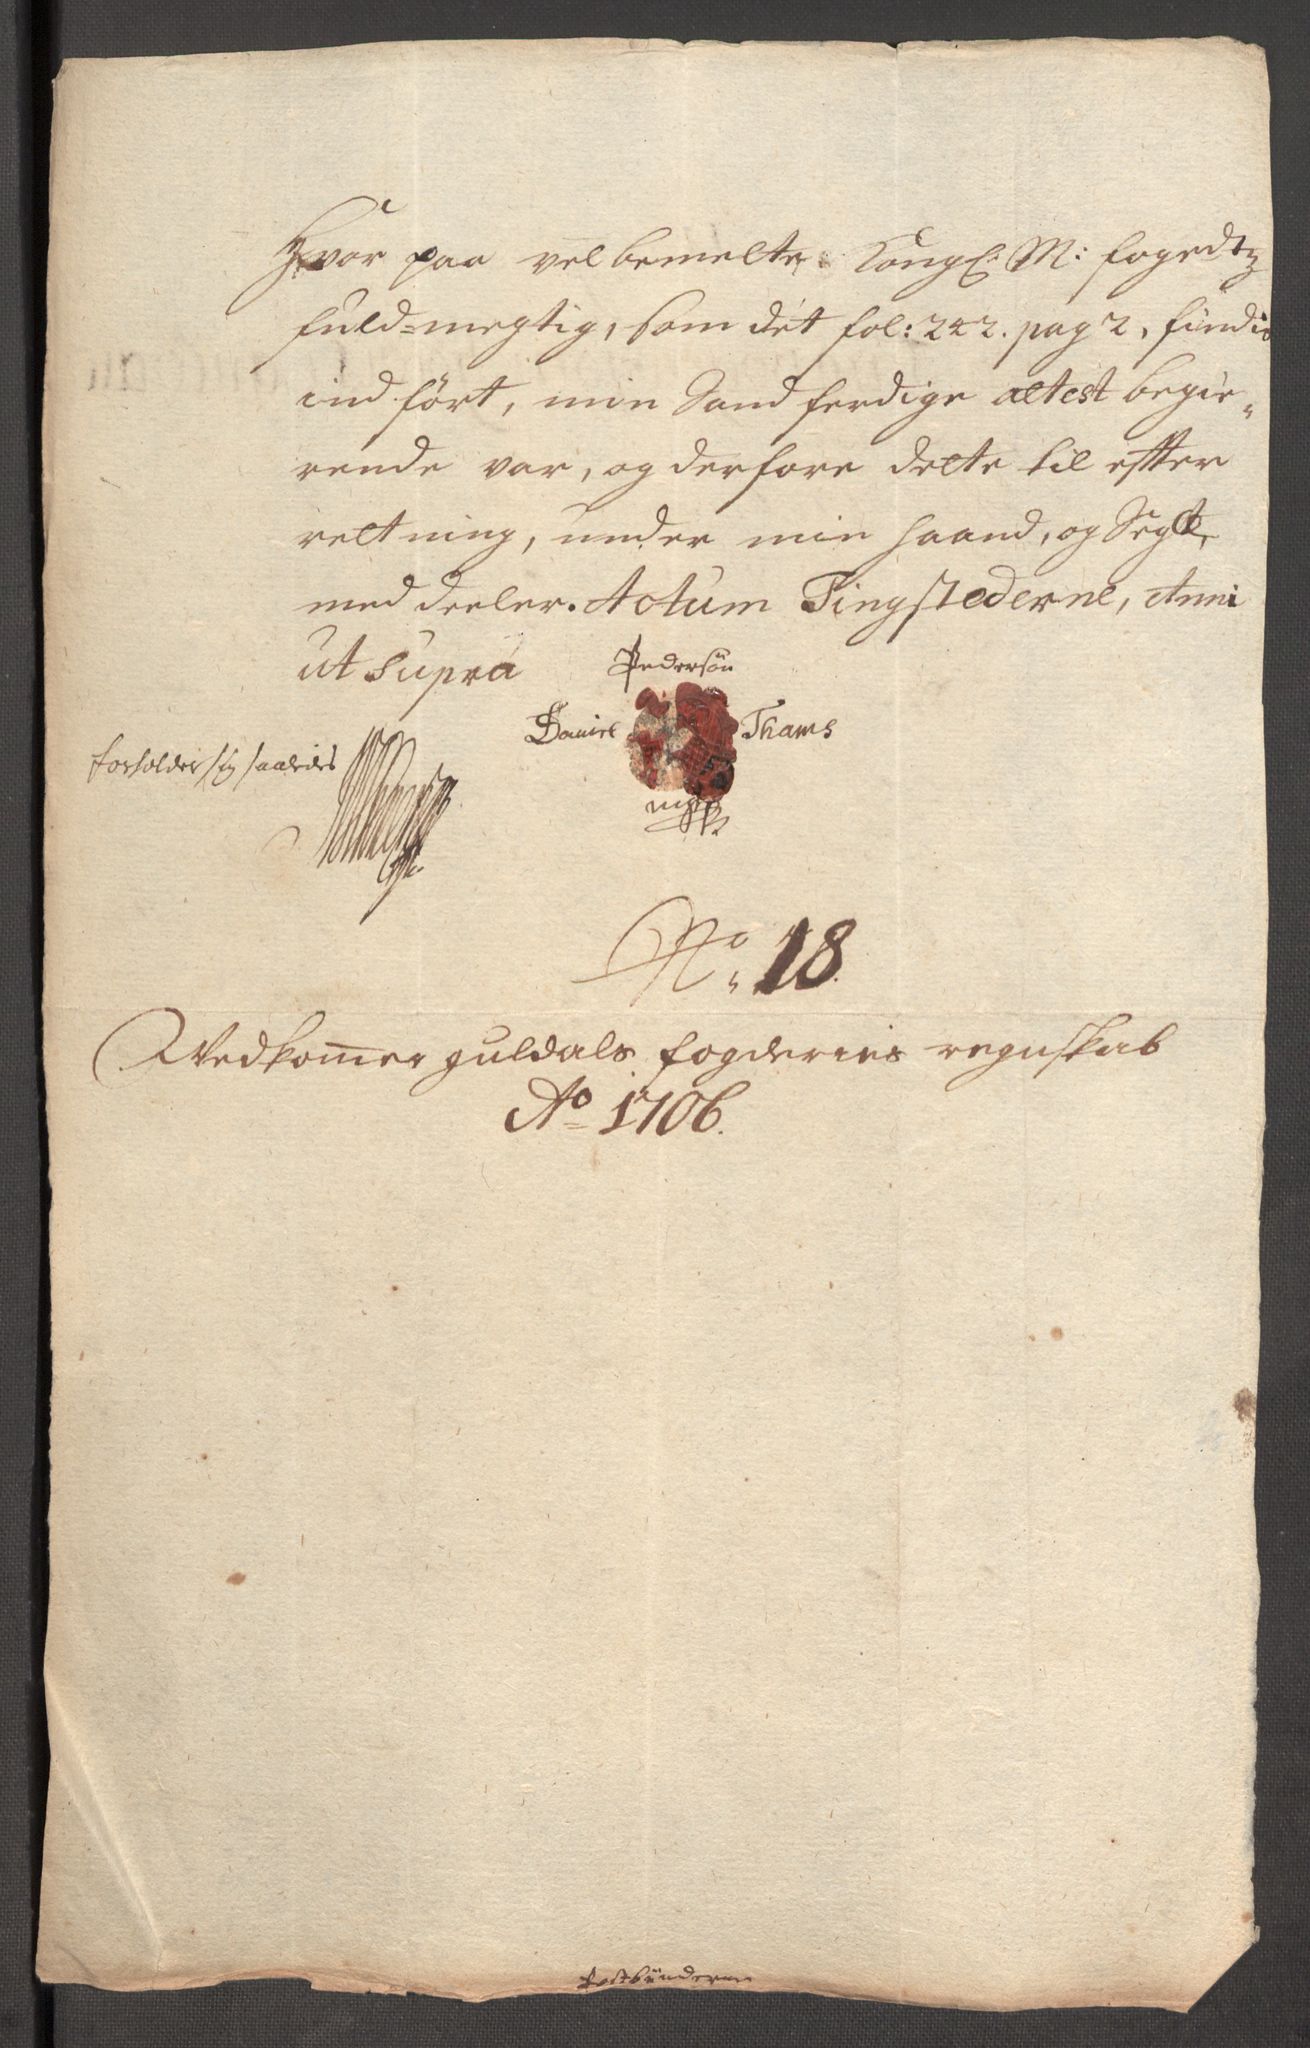 Hvor paa velbemelte Kongl: M: fogedtz
fuld=megtig, som det fol: 242. pag 2, findis
indført, min Sandferdige attest begie-
rende var, og derfore dette til effter
rettning, under min haand, og Segl,
meddeeler. Actum Tingstederne, Anni
ut Supra
Pedersøn
Daniel Thams
mppr
forholder sig saaledis
No. 18.
Vedkommer guldals fogderies regnskab
Ao 1706.
Postbønderne